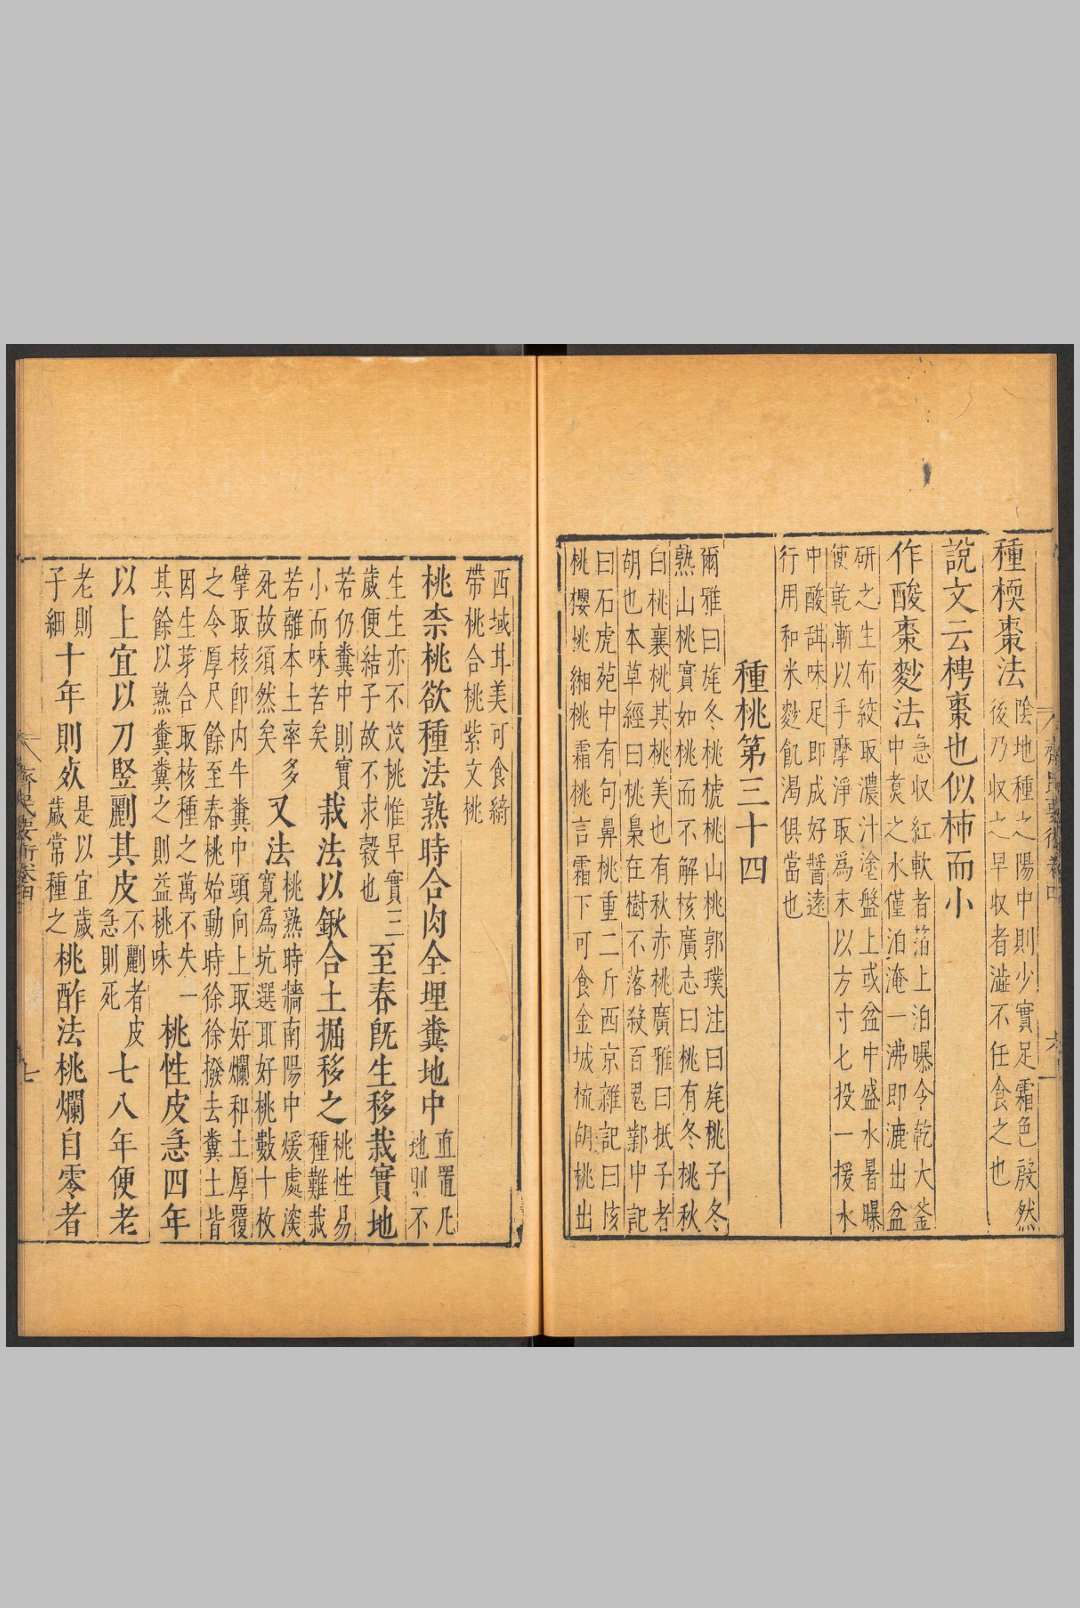 種楔棗法
陰地種之陽中則少實足霜色殷然
後乃收之早收者澁不任食之也
說文云梬棗也似柿而小
作酸棗麨法
急收紅軟者箔上泊曝令乾大釜
中煑之水僅泊淹一沸即漉出盆
研之生布絞取濃汁塗盤上或盆中盛水暑曝
使乾漸以手摩淨取爲末以方寸七投一援水
中酸𫍠味足即成好醤遠
行用和米麨飢渴俱當也
種桃第三十四
爾雅曰旄冬桃榹山桃郭璞注曰旄桃子冬
熟山桃實如桃而不解核廣志曰桃有冬桃秋
白桃襄桃其桃美也有秋赤桃廣雅曰抵子者
胡也本草經曰桃梟在樹不落殺百鬼鄴中記
曰石虎苑中有句鼻桃重二斤西京雜記曰核
桃櫻桃緗桃霜桃言霜下可食金城桃胡桃出
西域甘美可食綺
帶桃合桃紫文桃
桃柰桃欲種法熟時合肉全埋糞地中
直置凡
地則不
生生亦不茂桃惟早實三
歲便結子故不求榖也
至春旣生移栽實地
若仍糞中則實
小而味苦矣
栽法以鍬合土掘移之
桃性易
種難栽
若離本土率多
死故須然矣
又法
桃熟時牆南陽中煖處深
寬爲坑選取好桃數十枚
擘取核卽内牛糞中頭向上取好爛和土厚覆
之令厚尺餘至春桃始動時徐徐撥去糞土皆
因生芽合取核種之萬不失一
其餘以熟糞糞之則益桃味
桃性皮急四年
以上宜以刀竪劚其皮
不劚者皮
急則死
七八年便老
老則
子細
十年則死
是以宜歲
歲常種之
桃酢法桃爛自零者
齊民要術卷四
七